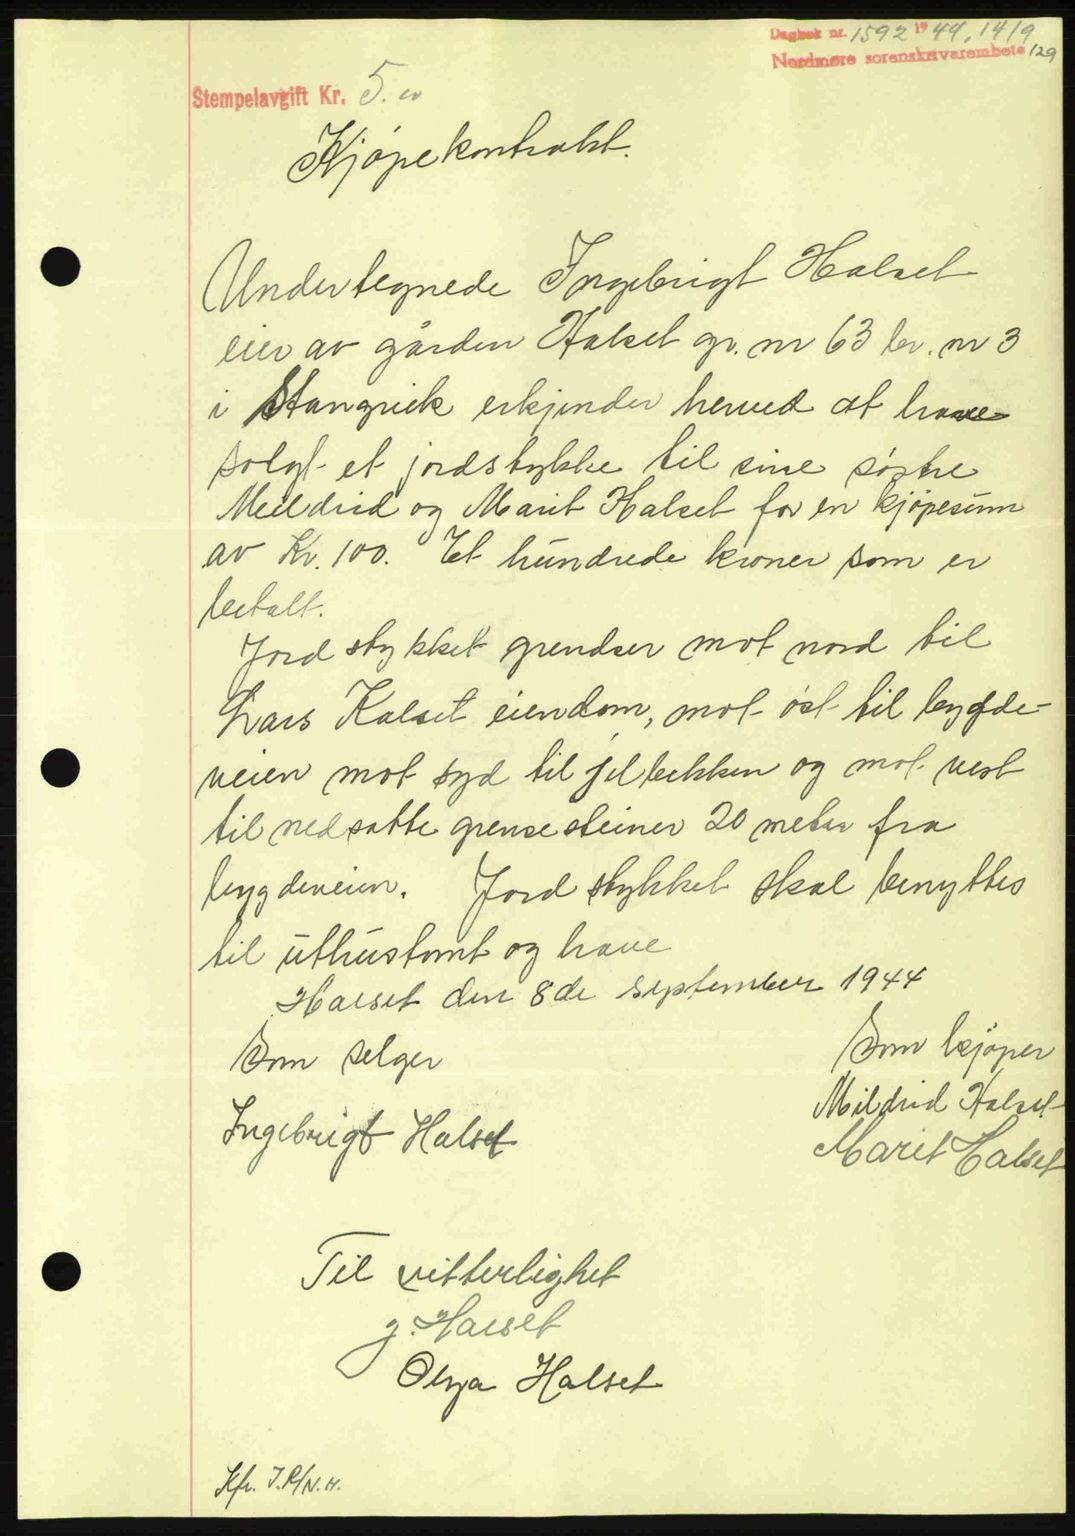 Dagbok nr. 1592 1944, 14/9
Nordmøre sorenskrivarembete 129
Stempelavgift Kr. 5.
Kjøpekontrakt.
Undertegnede Ingebrigt Halset
eier av gården Halset gr. nr 63 br. nr 3
i Stangvik erkjender herved at have
solgt et jordstykke til sine søstre
Meldrid og Marit Halset for en kjøpesum
av Kr. 100. Et hundrede kroner som er
betalt.
Jordstykket grendser mot nord til
Lars Halset eiendom, mot øst til bygde-
veien mot syd til jilbekken og mot vest
til nedsatte grensesteiner 20 meter fra
bygdeveien. Jordstykket skal benyttes
til uthustomt og have
Halset den 8de september 1944
Som selger
Som kjøper
Mildrid Halset
Ingebrigt Halset
Marit Halset
Til vitterlighet
J. Halset
Olga Halset
Kfr.